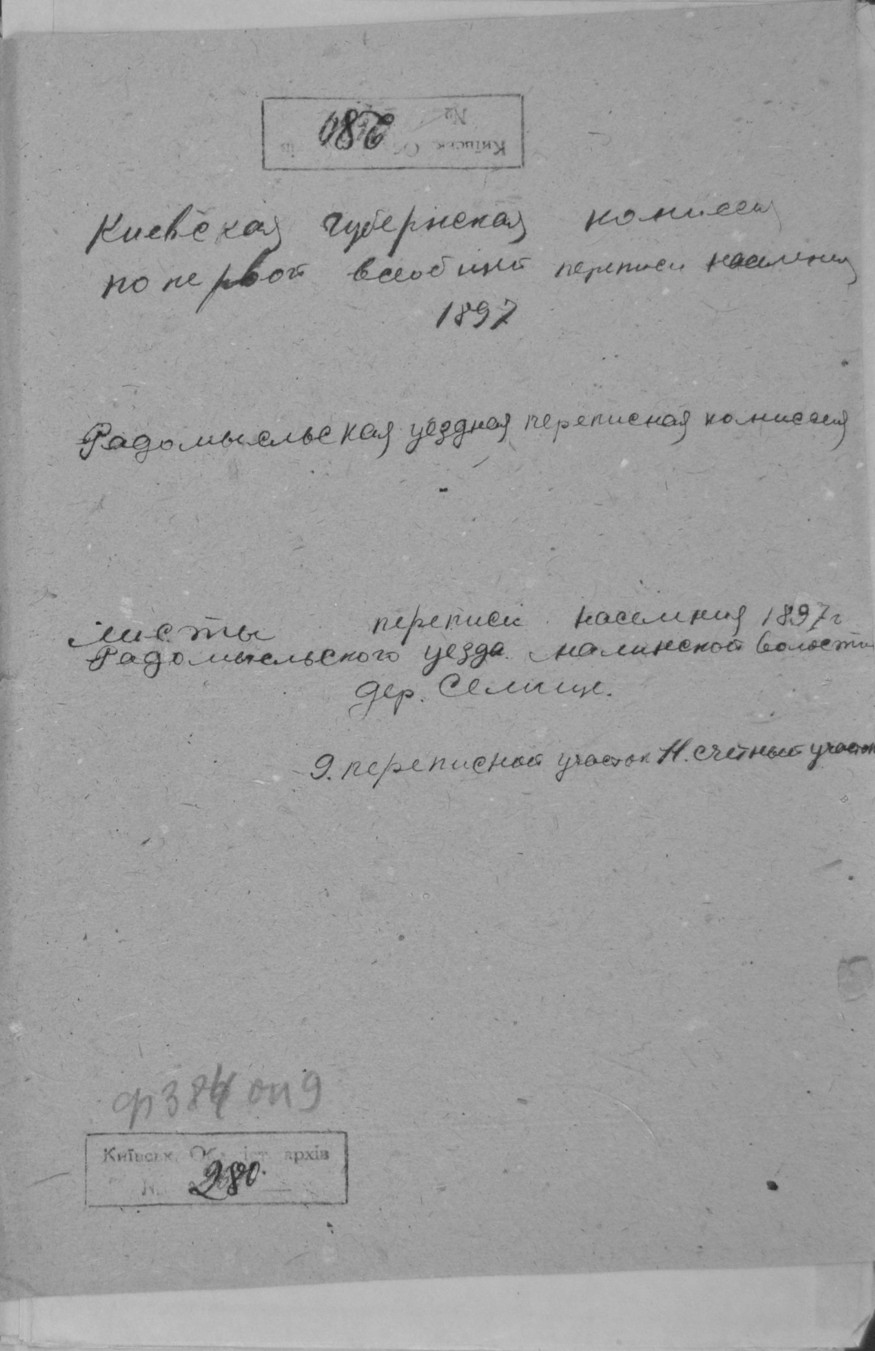 280
Київськ. Об
№
Киевская губернская комиссия
по первой всеобщей переписи населения
1897
Радомысльская уездная переписная комиссия
Листы переписи населения 1897 г
Радомысльского уезда Малинской волости
дер. Селище.
9. переписной участок счетный участок
ф 384 оп 9
Київськ. Об. іст. архів
№ 280.